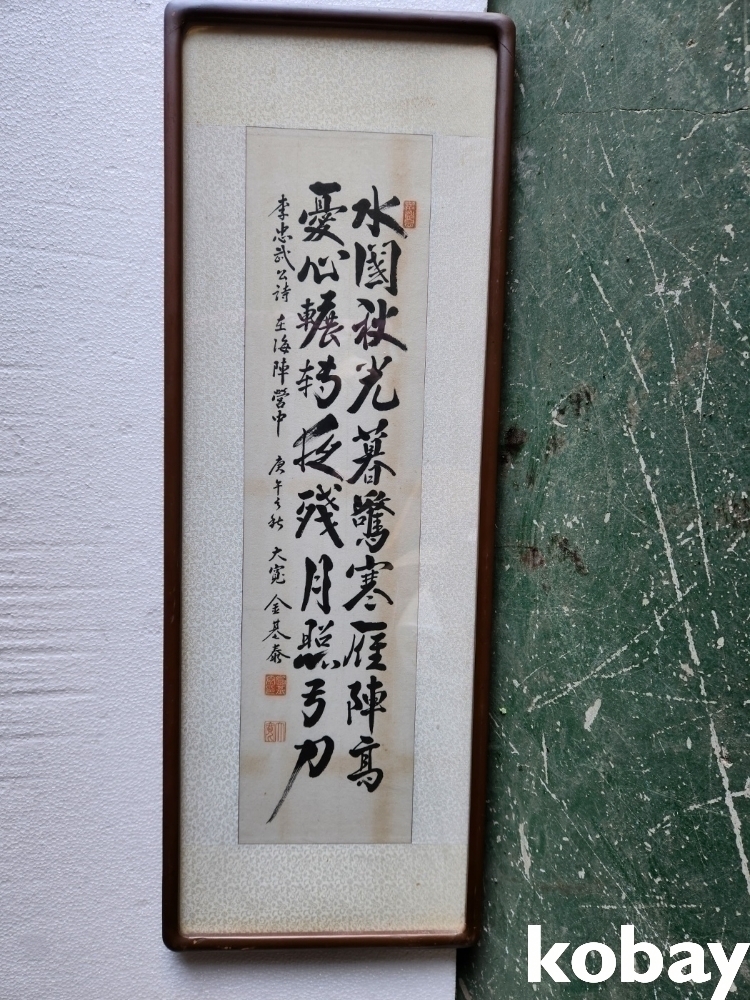 水國秋光暮驚寒雁陣高
憂心輾轉夜殘月照弓刀
李忠武公詩 在海陣營中 庚午之秋 大寬 金基泰
kobay